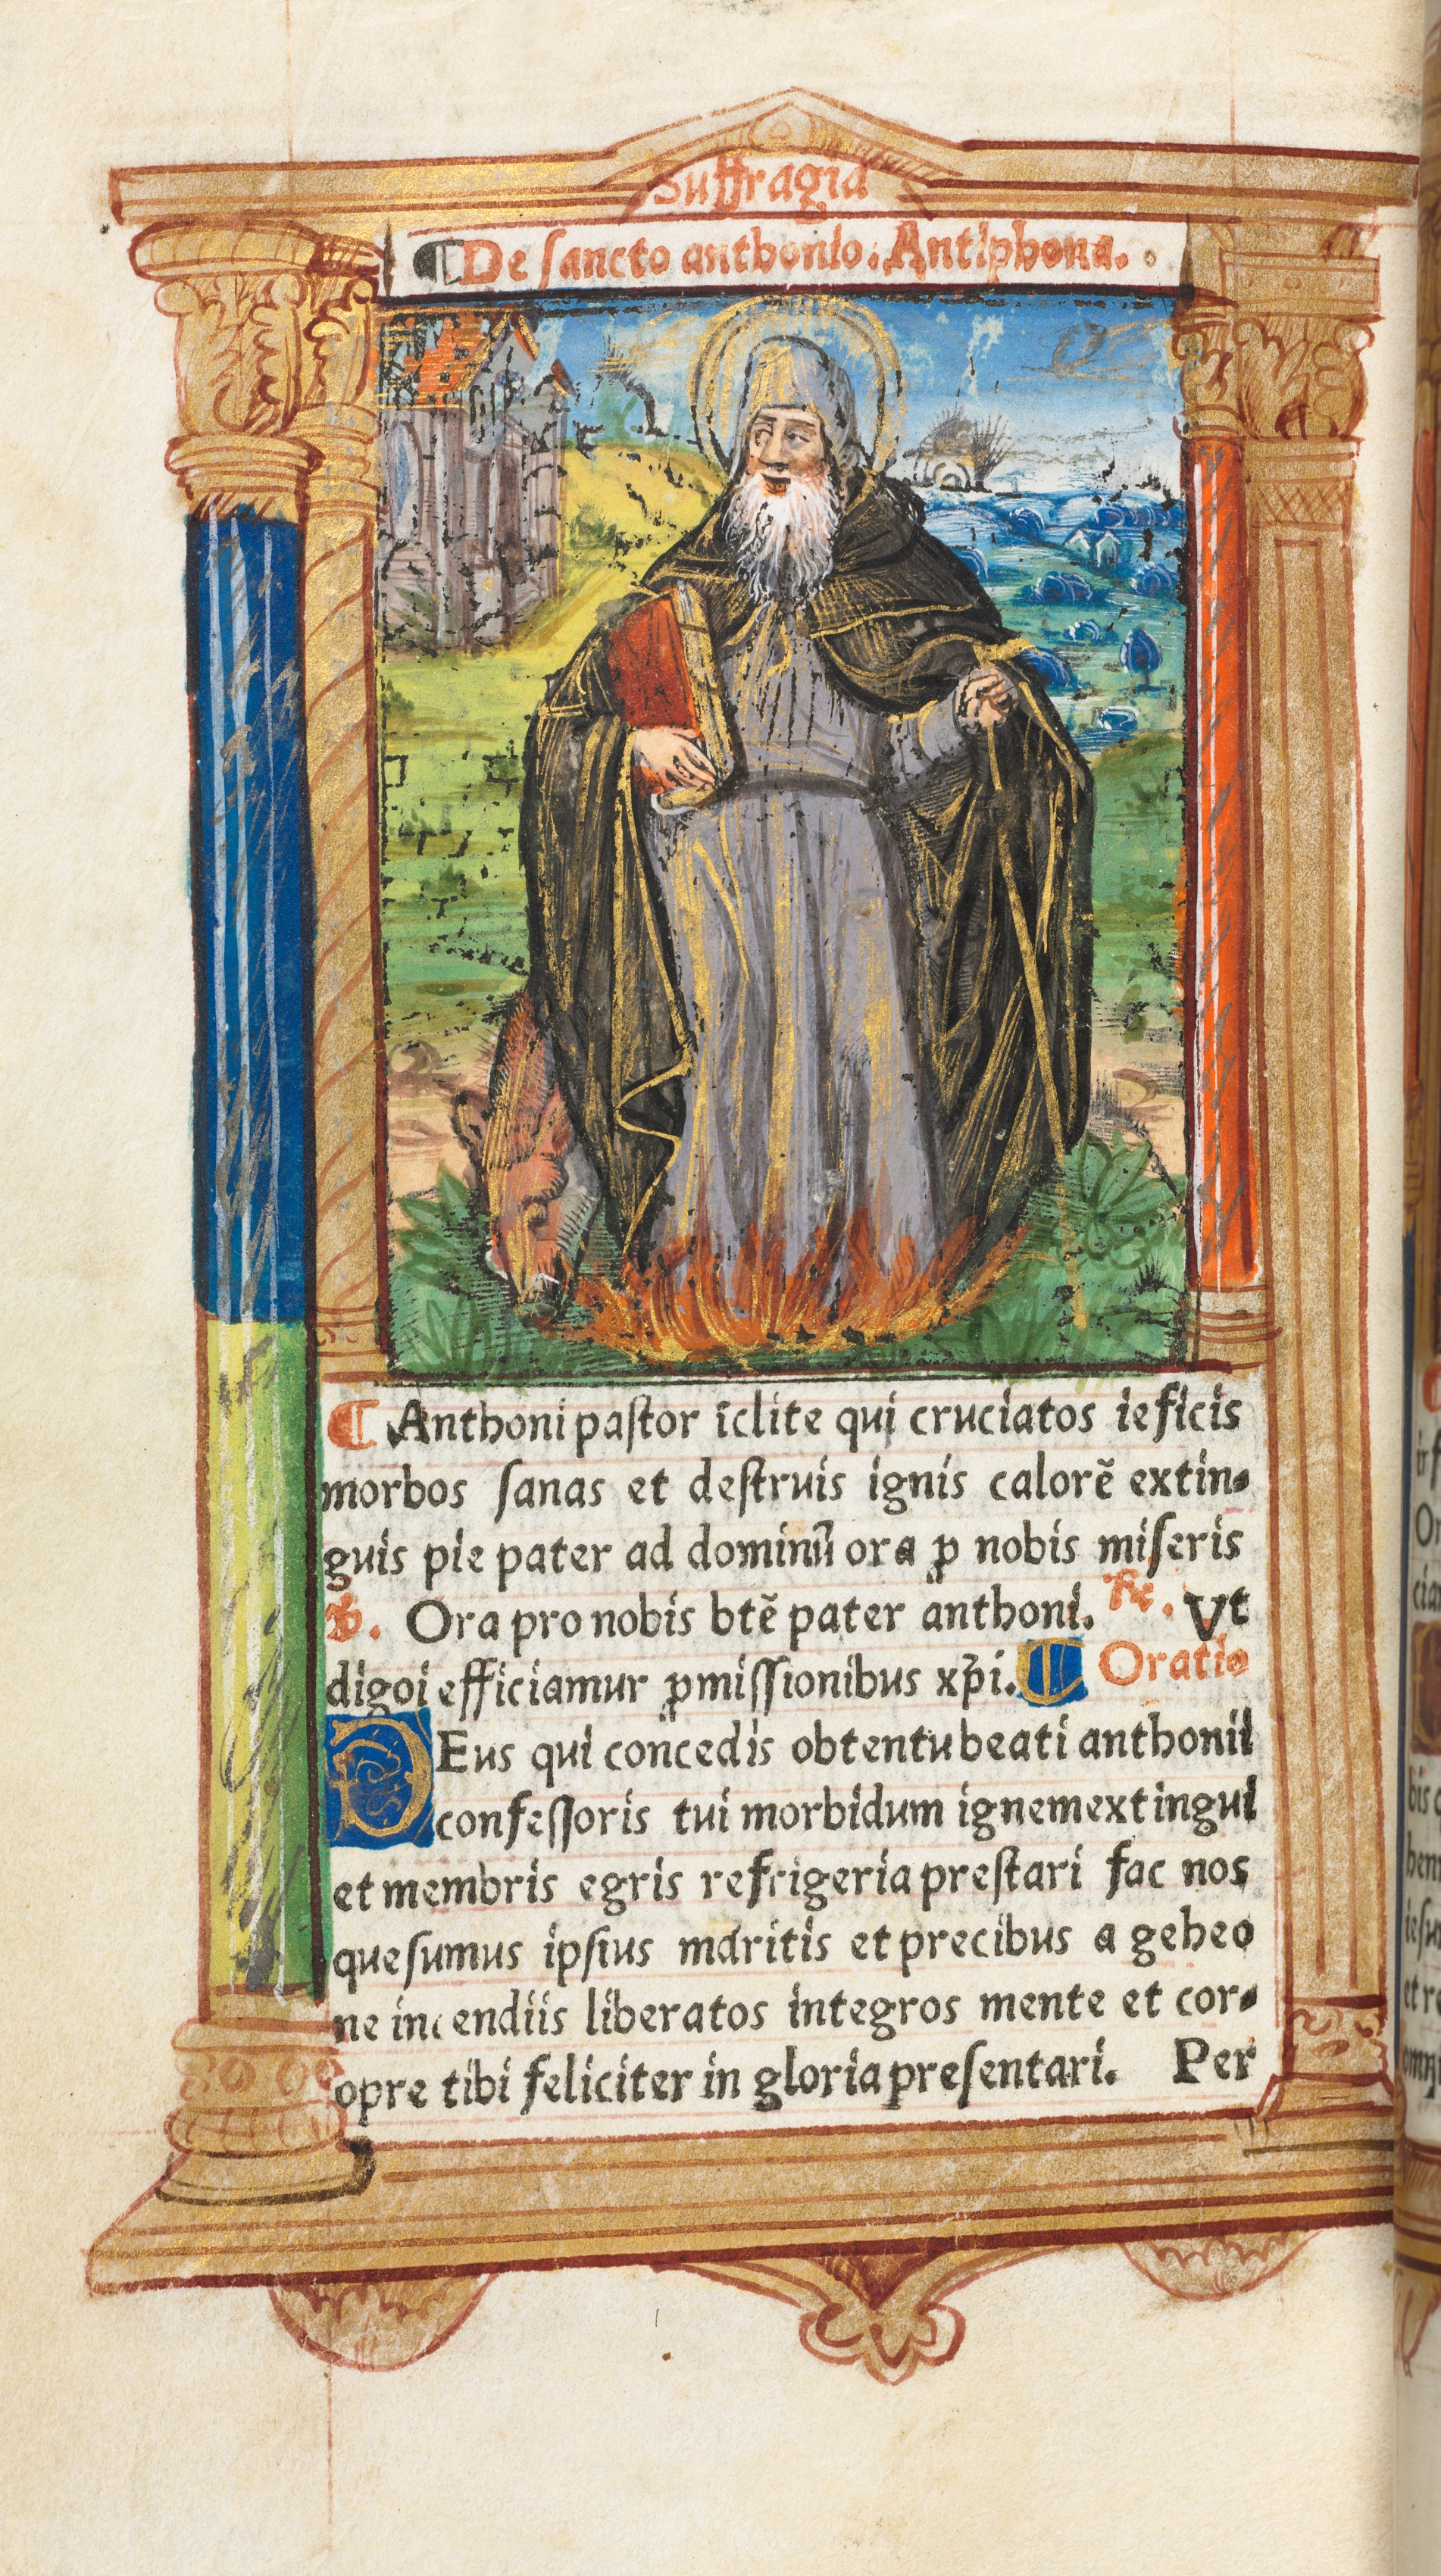 Suffragia
¶ De sancto anthonio. Antiphona.
¶ Anthoni paſtor īclite qui cruciatos ieficis
morbos ſanas et deſtruis ignis calorē extin-
guis pie pater ad dominū ora ꝓ nobis miſeris
℣. Ora pro nobis btē pater anthoni. ℟. Vt
digoi efficiamur ꝓmiſſionibus xp̄i. ¶ Oratio
DEus qui concedis obtentu beati anthonii
confeſſoris tui morbidum ignem extingui
et membris egris refrigeria preſtari fac nos
queſumus ipſius maritis et precibus a geheo
ne incendiis liberatos integros mente et cor-
opre tibi feliciter in gloria preſentari. Per